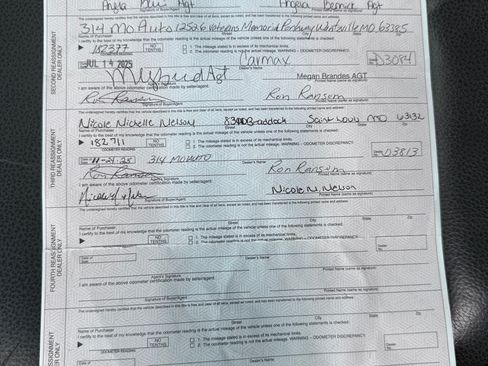 Angela Agt Angela Bernick Agt
The undersigned hereby certifies that the vehicle described in this title is free and clear of all liens, except as noted, and has been transferred to the following printed name and address:
314 Mo Auto 1250.6 Veterans Memorial Parkway Wentzville MO 63385
Name of Purchaser Street City State Zip
I certify to the best of my knowledge that the odometer reading is the actual mileage of the vehicle unless one of the following statements is checked:
182377 NO TENTHS 1. The mileage stated is in excess of its mechanical limits.
2. The odometer reading is not the actual mileage. WARNING - ODOMETER DISCREPANCY
JUL 14 2025 Carmax D3084
Dealer's Name
Agt Megan Brandes AGT
I am aware of the above odometer certification made by seller/agent.
Ron Ransom Ron Ransom
Signature of Buyer/Agent Printed Name
Nicole Nichelle Nelson Braddock Saint Louis MO 63132
Name of Purchaser Street City State Zip
I certify to the best of my knowledge that the odometer reading is the actual mileage of the vehicle unless one of the following statements is checked:
182711 NO TENTHS 1. The mileage stated is in excess of its mechanical limits.
2. The odometer reading is not the actual mileage. WARNING - ODOMETER DISCREPANCY
11-21-25 314 MO AUTO D3813
Dealer's Name
Ron Ransom Ron Ransom
I am aware of the above odometer certification made by seller/agent.
Nicole N. Nelson
Signature of Buyer/Agent
The undersigned hereby certifies that the vehicle described in this title is free and clear of all liens, except as noted, and has been transferred to the following printed name and address:
Name of Purchaser Street City State Zip
I certify to the best of my knowledge that the odometer reading is the actual mileage of the vehicle unless one of the following statements is checked:
NO TENTHS 1. The mileage stated is in excess of its mechanical limits.
2. The odometer reading is not the actual mileage. WARNING - ODOMETER DISCREPANCY
Dealer's Name
Agent's Signature
I am aware of the above odometer certification made by seller/agent.
Signature of Buyer/Agent
The undersigned hereby certifies that the vehicle described in this title is free and clear of all liens, except as noted, and has been transferred to the following printed name and address:
Name of Purchaser Street City State
I certify to the best of my knowledge that the odometer reading is the actual mileage of the vehicle unless one of the following statements is checked:
ODOMETER READING NO TENTHS 1. The mileage stated is in excess of its mechanical limits.
2. The odometer reading is not the actual mileage. WARNING - ODOMETER DISCREPANCY
Dealer's Name
SECOND REASSIGNMENT
DEALER ONLY
THIRD REASSIGNMENT
DEALER ONLY
FOURTH REASSIGNMENT
DEALER ONLY